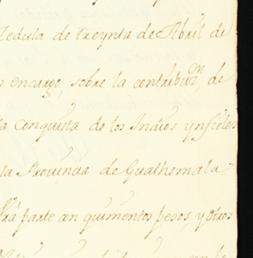 Zedula de treynta de Abril de
encargo, sobre la contribuz.on de
la Conquista de los Indios ynfieles
la Provincia de Guathemala
parte con quinientos pesos, y otros